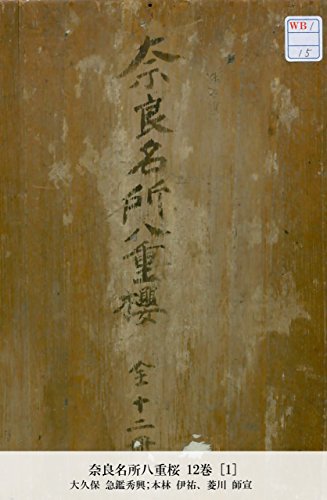 WB1
15
奈良名所八重櫻 全十二冊
奈良名所八重桜 12巻 [1]
大久保 急鑑秀興;本林 伊祐、菱川 師宣